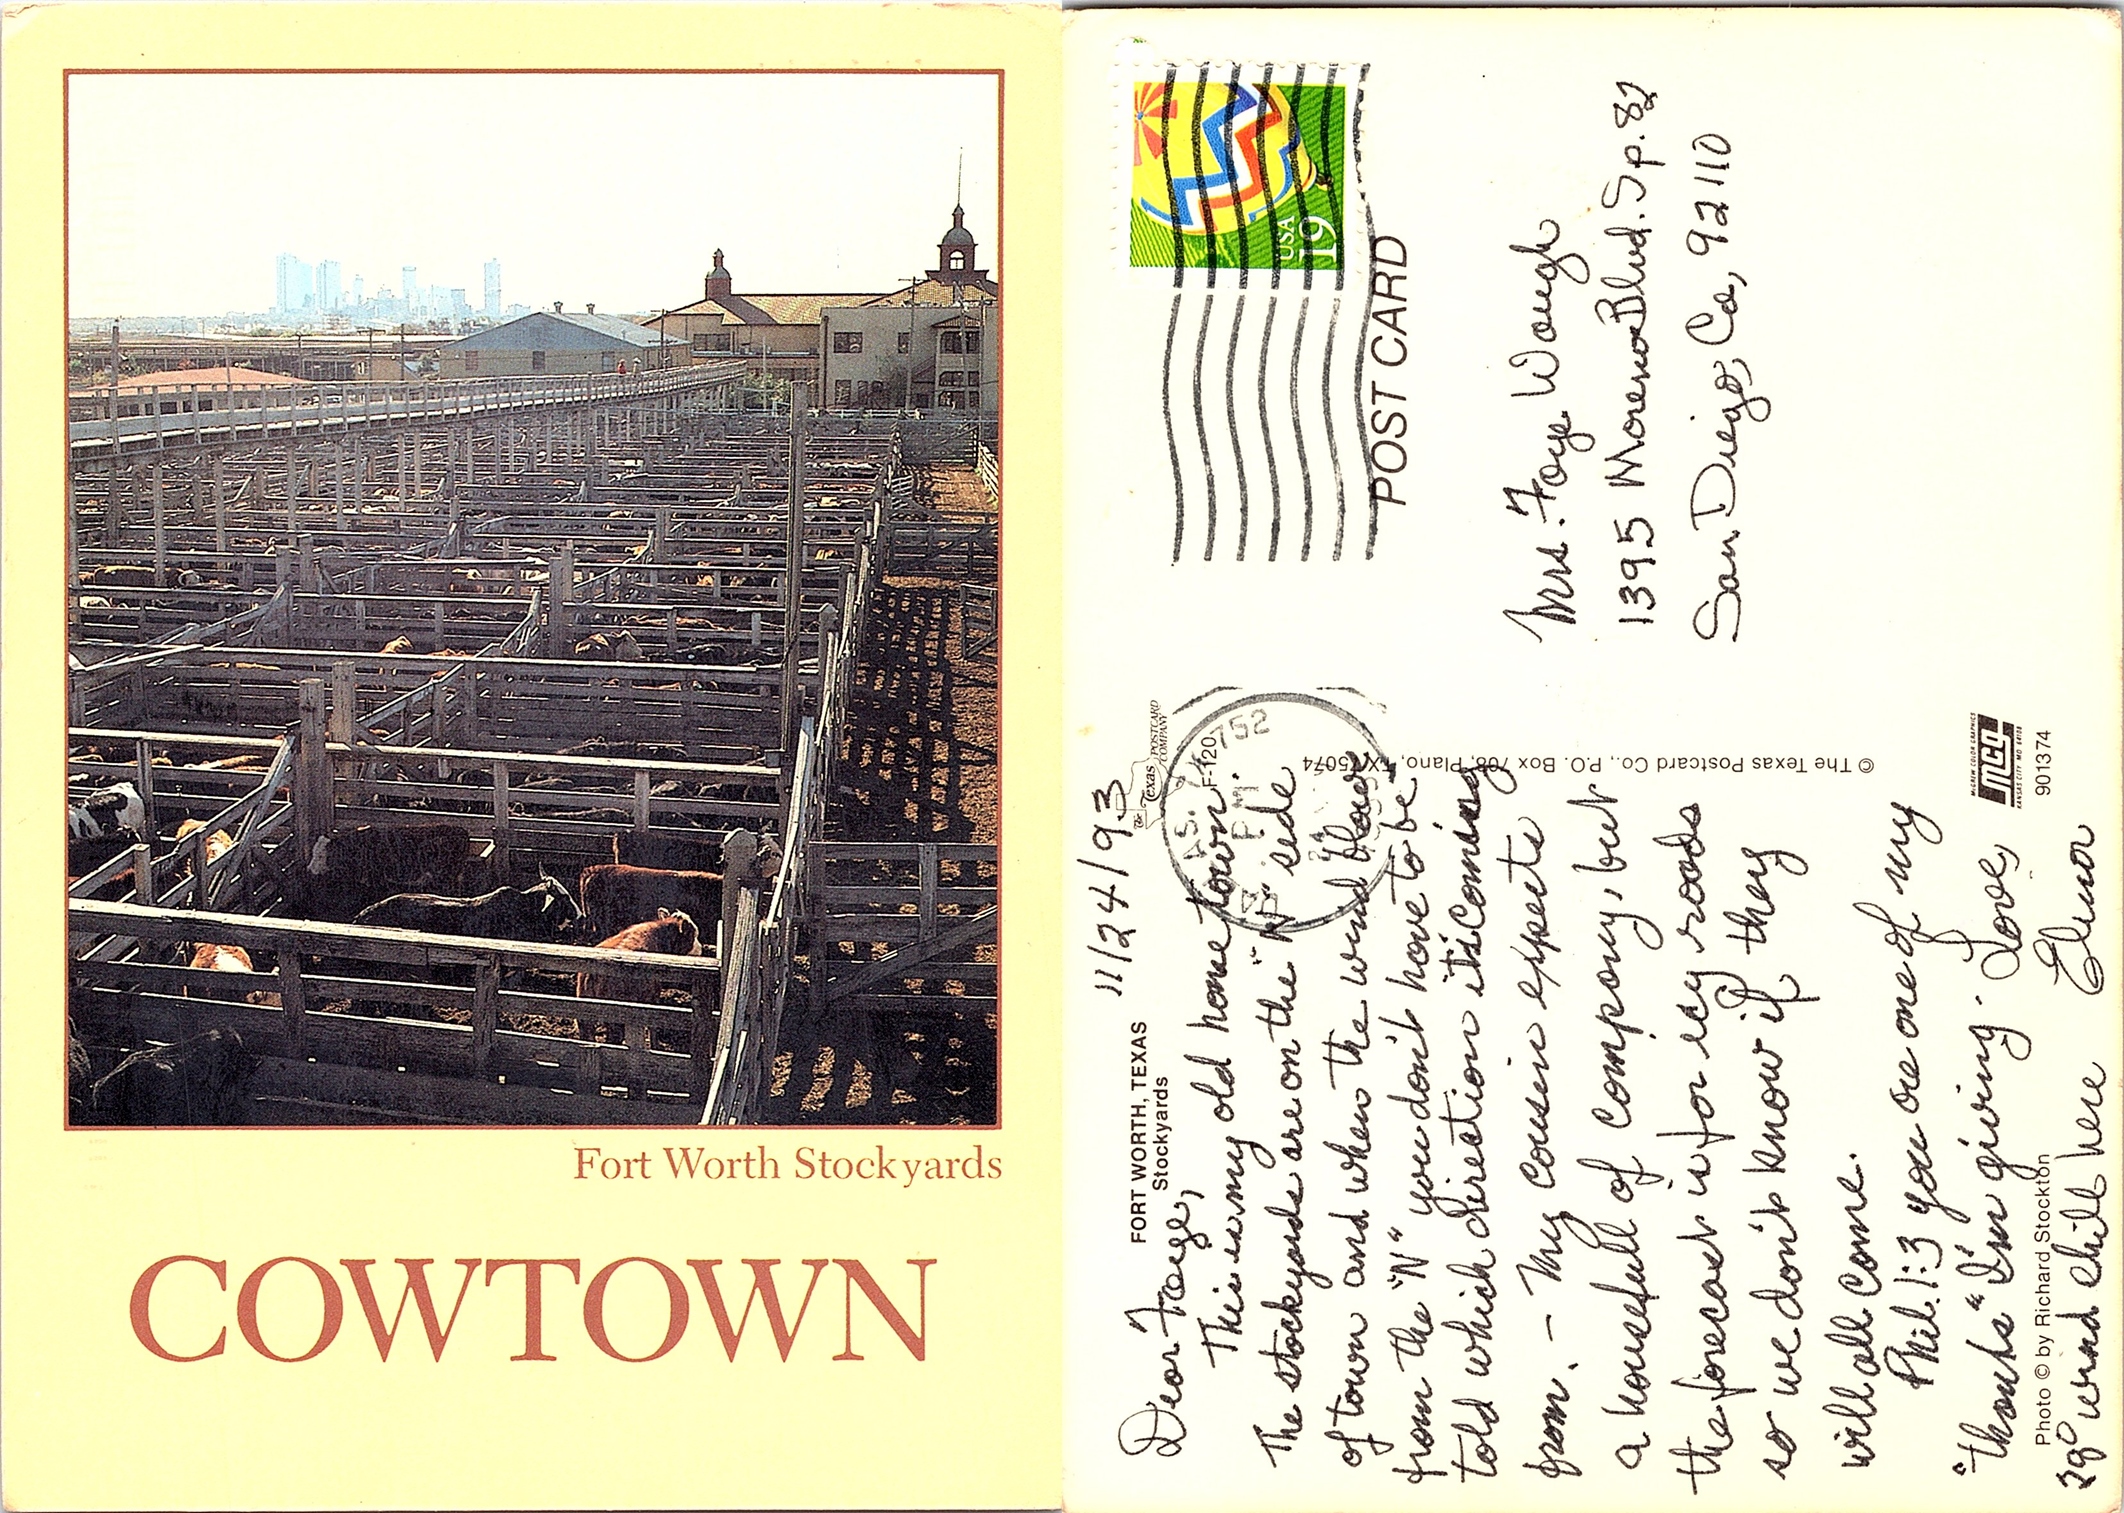 Fort Worth Stockyards
COWTOWN
FORT WORTH, TEXAS
Stockyards
11/24/93
The Texas POSTCARD COMPANY
F-120
752
P.M.
Dear Faye,
This is my old home town.
The stockyards are on the "N" side
of town and when the wind blows
from the "N" you don't have to be
told which direction it's coming
from. – My cousin expects
a housefull of company, but
the forecast is for icy roads
so we don't know if they
will all come.
Phil. 1:3 you are one of my
"thanks" I'm giving. Love,
29° wind chill here Elinor
Photo © by Richard Stockton
© The Texas Postcard Co., P.O. Box 708, Plano, TX 75074
McGREW COLOR GRAPHICS
MCG
KANSAS CITY, MO 64108
901374
USA
19
POST CARD
Mrs. Faye Waugh
1395 Morena Blvd. Sp. 82
San Diego, Ca, 92110